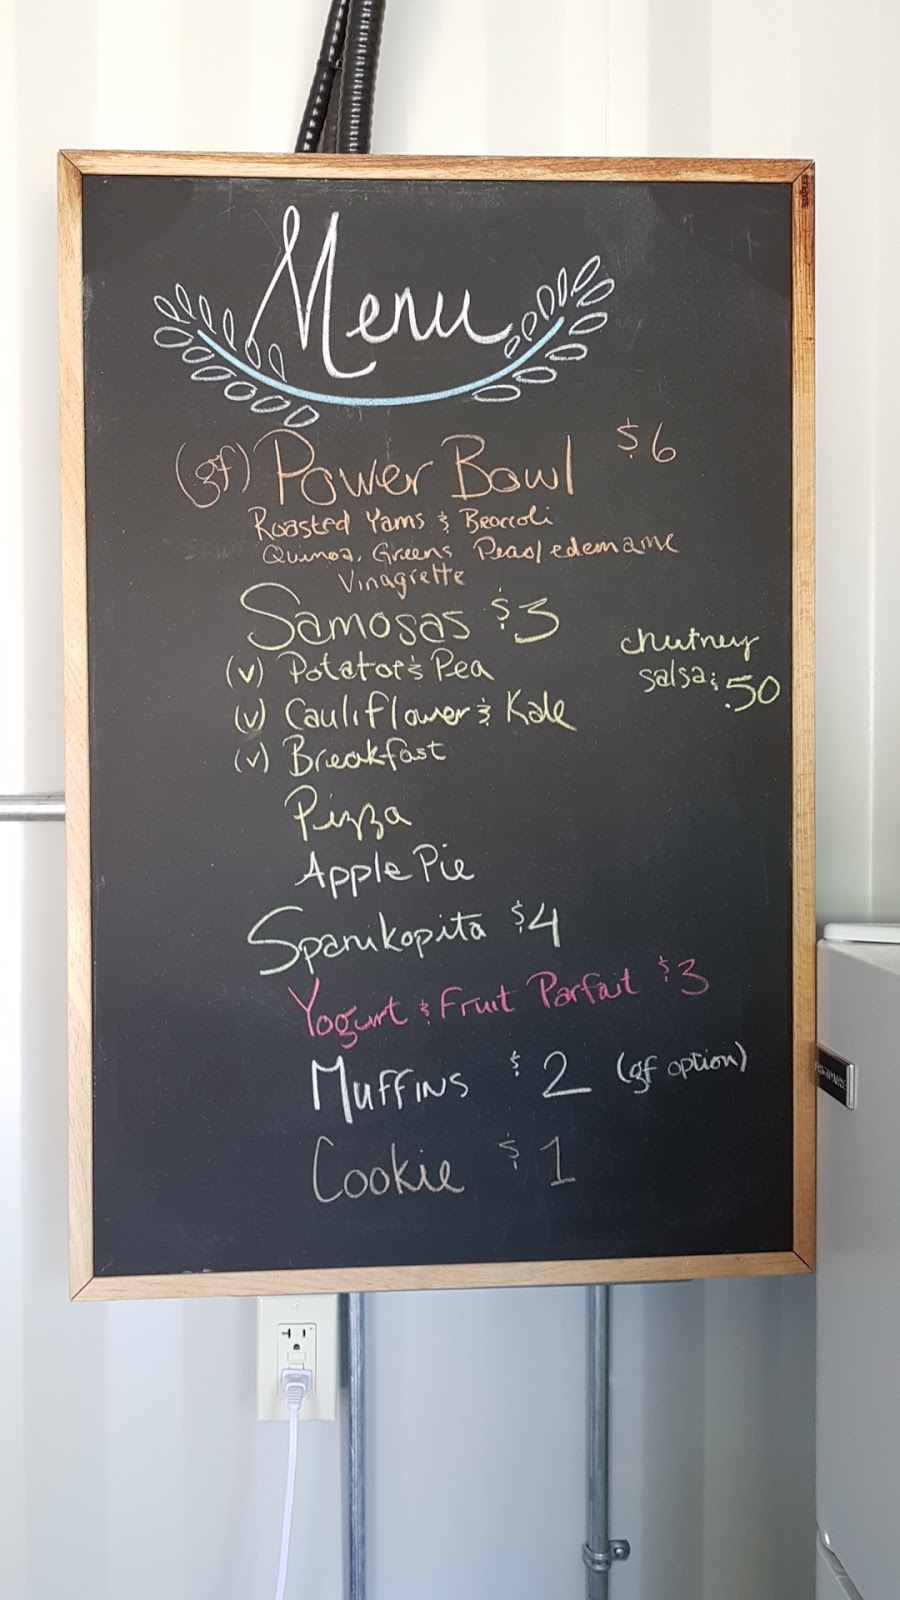 Menu
(gf) Power Bowl $6
Roasted Yams & Broccoli
Quinoa, Greens Peas/edemame
Vinagrette
Samosas $3
(v) Potatoe & Pea
chutney
salsa: .50
(v) Cauliflower & Kale
(v) Breakfast
Pizza
Apple Pie
Spanikopita $4
Yogurt & Fruit Parfait $3
Muffins $2 (gf option)
Cookie $1